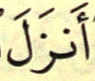 أَنزَلَ